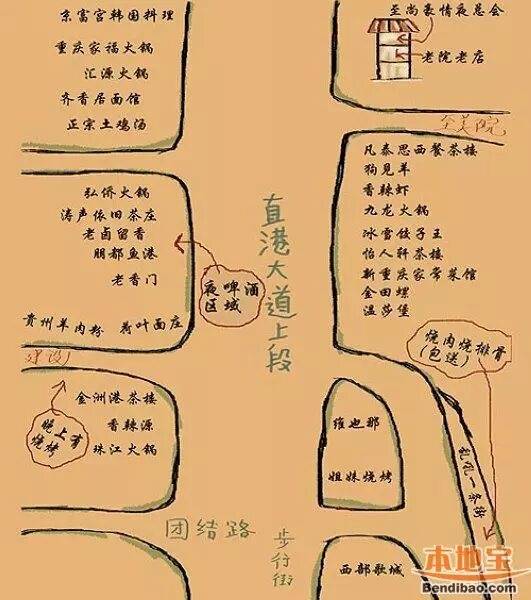 京富宫韩国料理
重庆家福火锅
汇源火锅
齐香居面馆
正宗土鸡汤
至尚豪情夜总会
老院老店
至美院
弘侨火锅
涛声依旧茶庄
老卤留香
朋都鱼港
老香门
贵州羊肉粉
荷叶面庄
夜啤酒
区域
直港大道上段
凡泰思西餐茶楼
狗见羊
香辣虾
九龙火锅
冰雪饺子王
怡人轩茶楼
新重庆家常菜馆
金田螺
温莎堡
烧肉烧排骨
(包送)
金洲港茶楼
香辣源
珠江火锅
晚上有
烧烤
维也那
姐妹烧烤
乱吃一条街
团结路
步行街
西部歌城
本地宝
Bendibao.com